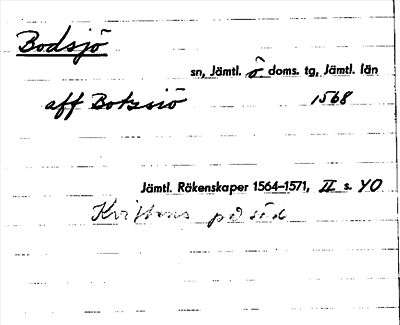 Bodsjö
sn, Jämtl. ö doms. tg, Jämtl. län
aff Botzsiö 1568
Jämtl. Räkenskaper 1564–1571, II s. 40